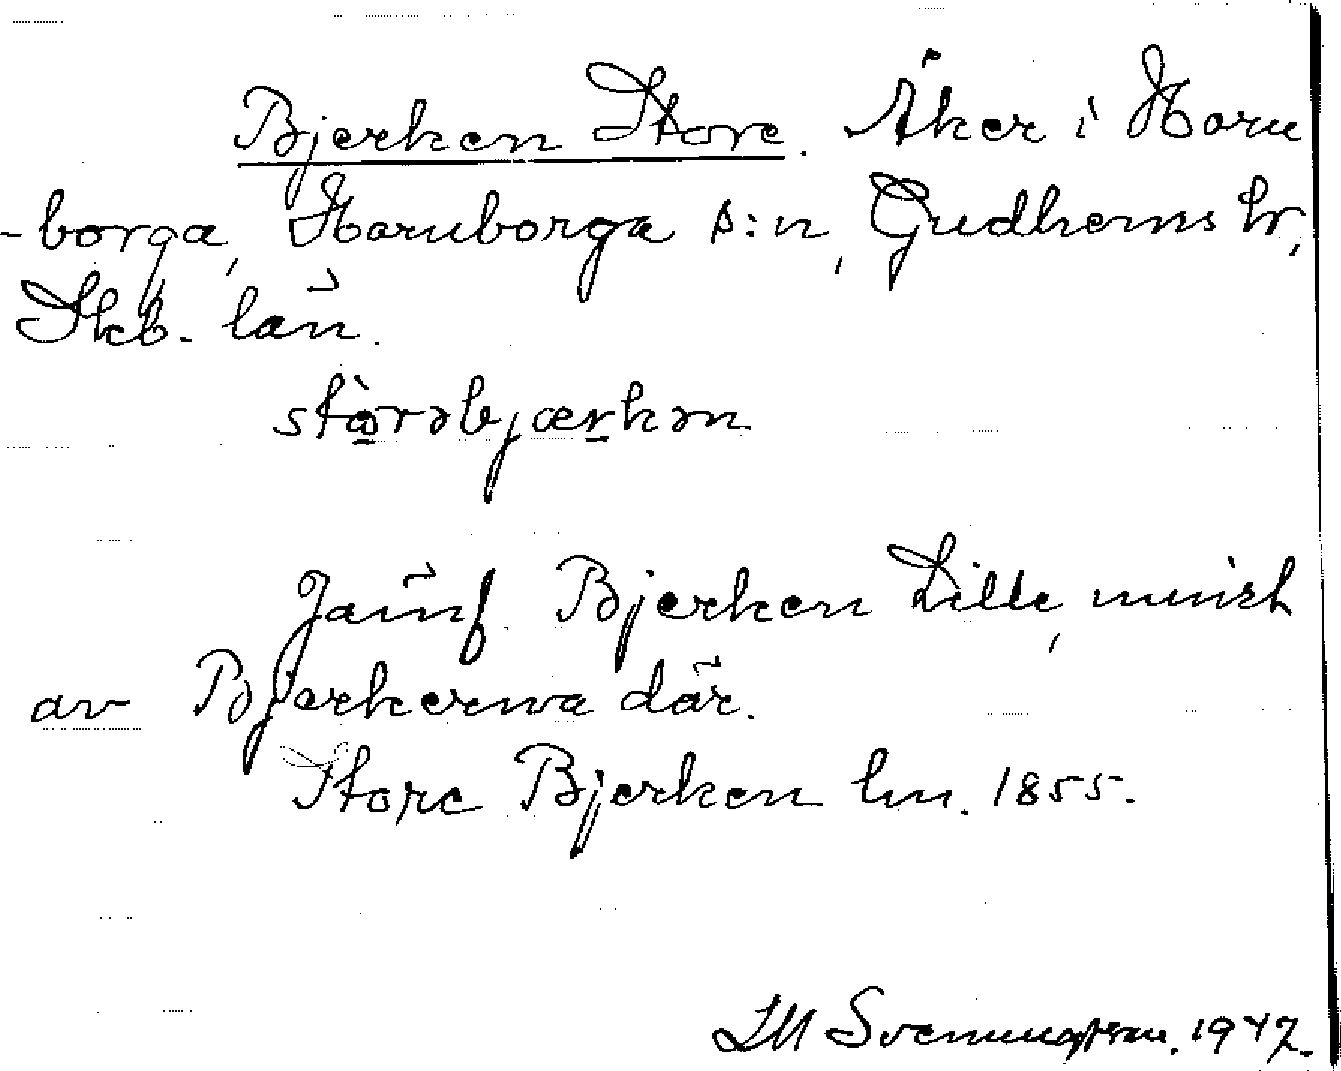 Bjerken Store. Åker i Horn
-borga, Hornborga s:n, Gudhems hr,
Skb. län.
stὼrəbjærkən
Jämf. Bjerken Lille, minsk
av Bjerkerna där.
Store Bjerken lm. 1855.
SM Svenungsson. 1947.